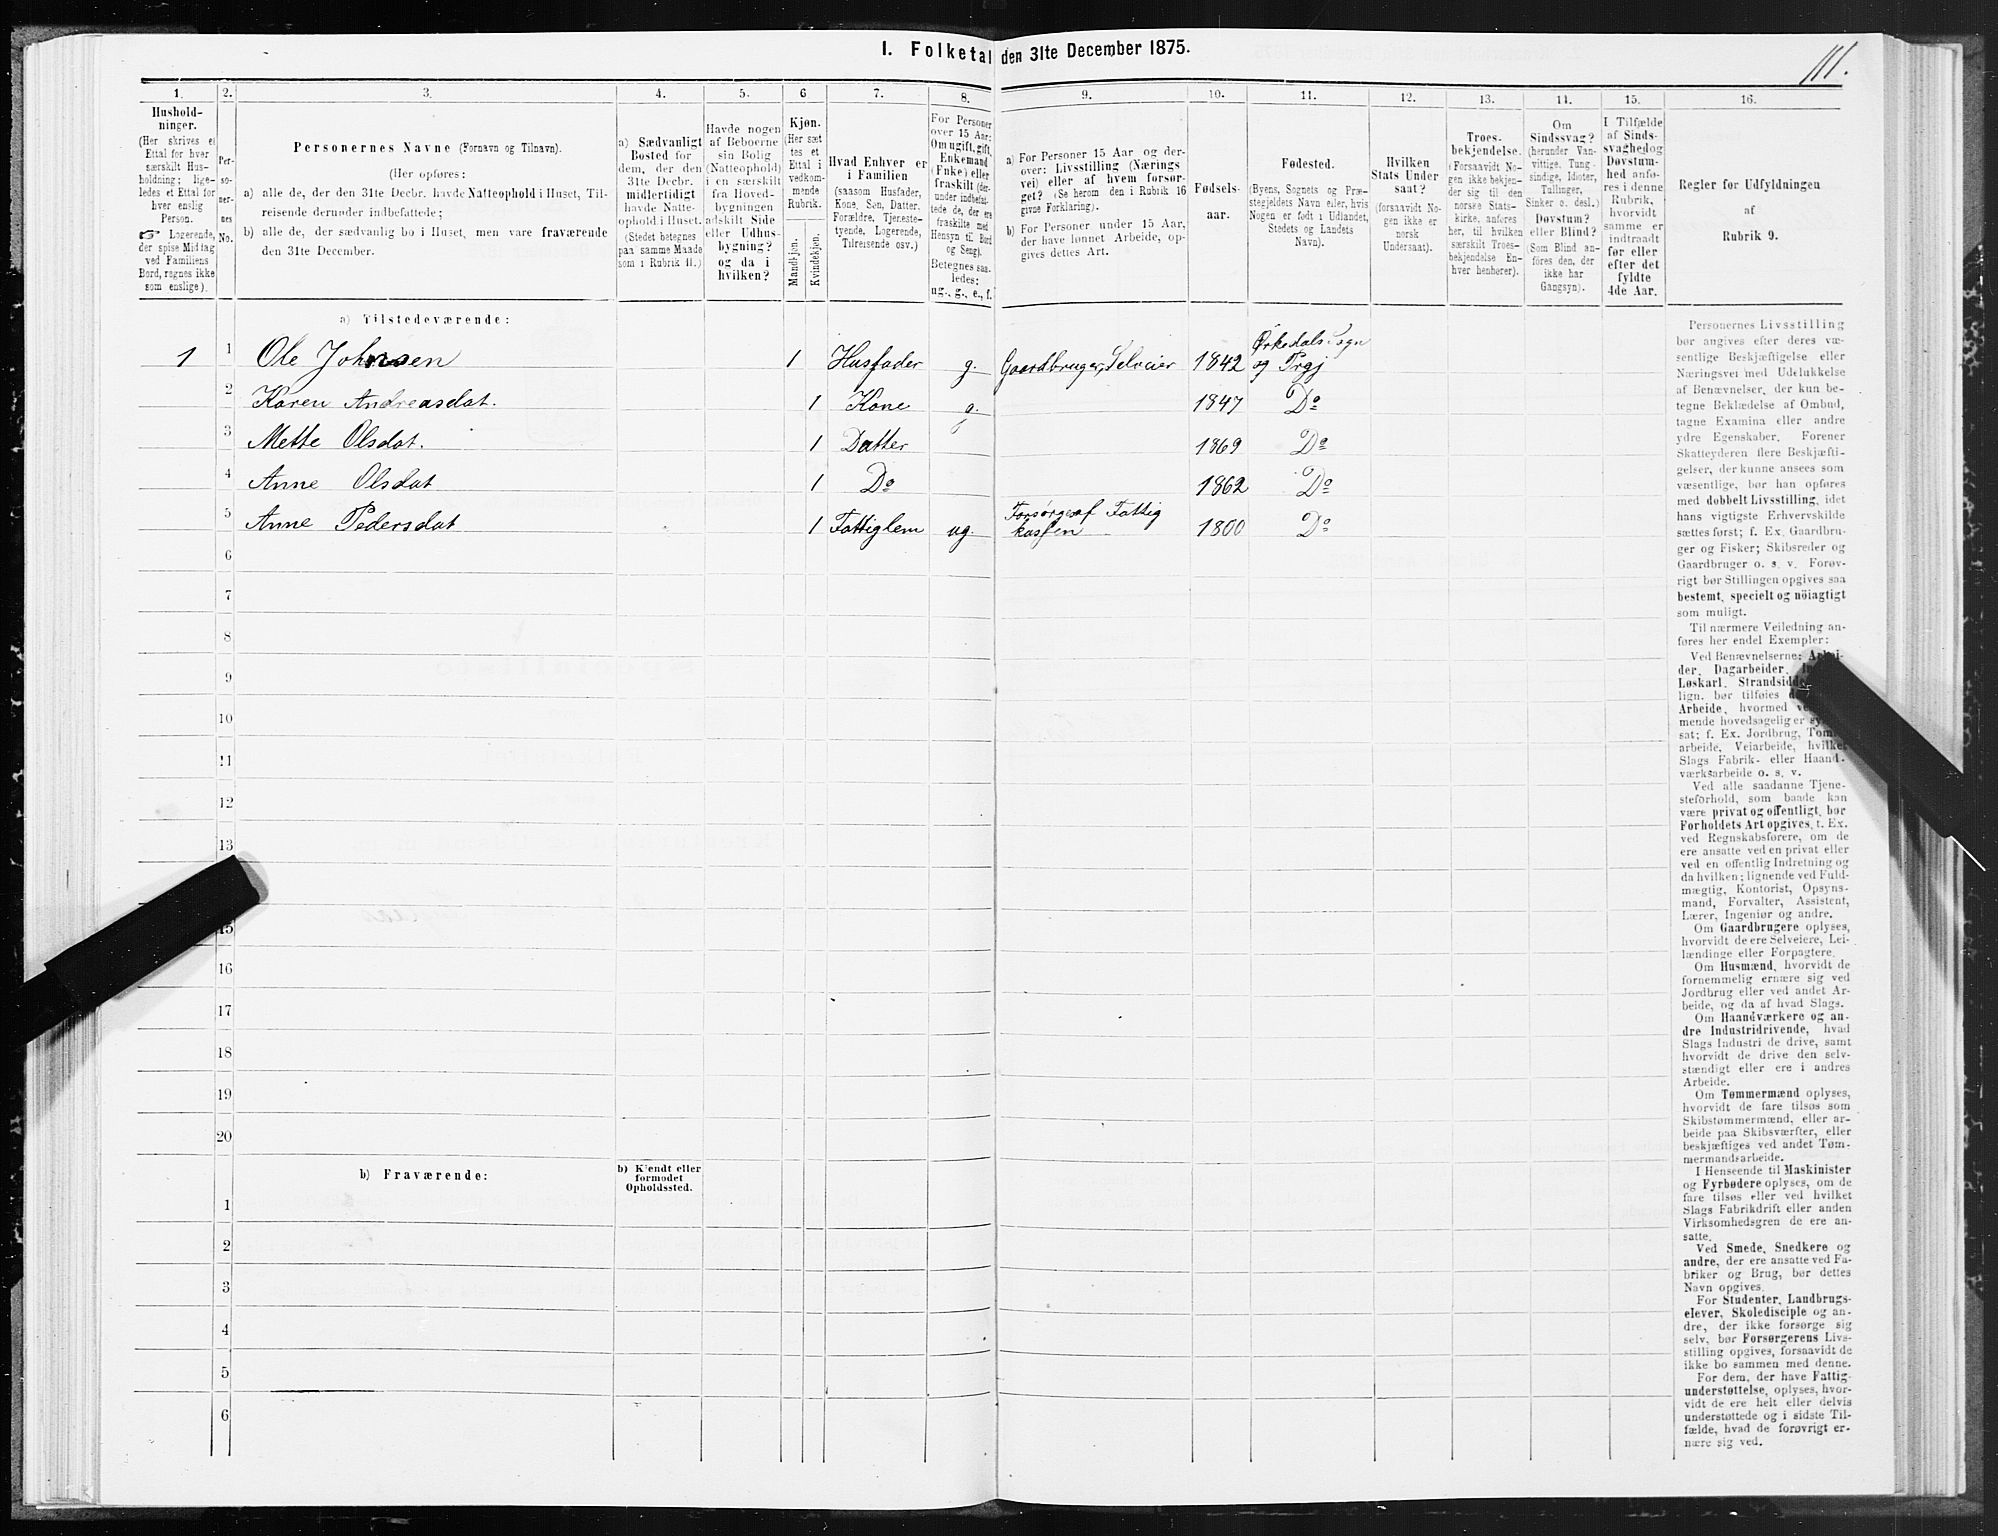 I. Folketal den 31te December 1875.
111.
1.
2.
3.
4.
5.
6
7.
8.
9.
10.
11.
12.
13.
14.
15.
16.
Hushold-
ninger.
(Her skrives et
Ettal for hver
særskilt Hus-
holdning; lige-
ledes et Ettal for
hver enslig
Person.
☞ Logerende,
der spise Middag
ved Familiens
Bord, regnes ikke
som enslige).
Per-
so-
ner-
nes
No.
Personernes Navne (Fornavn og Tilnavn).
(Her opføres:
a) alle de, der den 31te Decbr. havde Natteophold i Huset, Til-
reisende derunder indbefattede;
b) alle de, der sædvanlig bo i Huset, men vare fraværende
den 31te December.
a) Sædvanligt
Bosted for
dem, der den
31te Decbr.
midlertidigt
havde Natte-
ophold i Huset.
(Stedet betegnes
paa samme Maade
som i Rubrik 11.)
Havde nogen
af Beboerne
sin Bolig
(Natteophold)
i en særskilt
fra Hoved-
bygningen
adskilt Side
eller Udhus-
bygning?
og da i
hvilken?
Kjøn.
(Her sæt
tes et
Ettal i
vedkom-
mende
Rubrik.
Mandkjøn.
Kvindekjøn.
Hvad Enhver er
i Familien
(saasom Husfader,
Kone, Søn, Datter,
Forældre, Tjeneste-
tyende, Logerende,
Tilreisende osv.)
For Personer
over 15 Aar:
Om ugift, gift,
Enkemand
(Enke) eller
fraskilt (der-
under indbefat-
tede de, der ere
fraskilte med
Hensyn til Bord
og Seng).
Betegnes saa-
ledes:
ug., g., e., f.
a) For Personer 15 Aar og der-
over: Livsstilling (Nærings
vei) eller af hvem forsør-
get? (Se herom den i Rubrik 16
givne Forklaring).
b) For Personer under 15 Aar,
der have lønnet Arbeide, op-
gives dettes Art.
Fødsels-
aar.
Fødested.
(Byens, Sognets og Præ-
stegjeldets Navn eller, hvis
Nogen er født i Udlandet,
Stedets og Landets
Navn).
Hvilken
Stats Under
saat?
(forsaavidt No-
gen ikke er
norsk
Undersaat).
Troes.
bekjendelse.
(Forsaavidt No-
gen ikke bekjen-
der sig til den
norske Stats-
kirke, anføres
her, til hvilken
særskilt Troes-
bekjendelse En-
hver henhører).
Om
Sindssvag?
(herunder Van-
vittige, Tung-
sindige, Idioter,
Tullinger,
Sinker o. desl.)
Døvstum?
eller Blind?
(Som Blind an-
føres den, der
ikke har
Gangsyn).
I Tilfælde
af Sinds-
svaghed og
Døvstum-
hed anfø-
res i denne
Rubrik,
hvorvidt
samme er
indtraadt
før eller
efter det
fyldte
4de Aar.
Regler for Udfyldningen
af
Rubrik 9.
a) Tilstedeværende:
1 1 Ole Johnsen 1 Husfader g. Gaardbruger, Selveier 1842 Ørkedals Sogn
og Prgj
2 Karen Andreasdat. 1 Kone g. 1847 Do
3 Mette Olsdat. 1 Datter 1869 Do
4 Anne Olsdat 1 Do 1862 Do
5 Anne Pedersdat 1 Fattiglem ug. Forsørges af Fattig
kassen 1800 Do
6
7
8
9
10
11
12
13
15
16
17
18
19
20
b) Fraværende:
b) Kjendt eller
formodet
Opholdssted.
1
2
3
4
5
6
Personernes Livsstilling
bør angives efter deres væ-
sentlige Beskjæftigelse eller
Næringsvei med Udelukkelse
af Benævnelser, der kun be-
tegne Beklædelse af Ombud,
tagne Examina eller andre
ydre Egenskaber. Forener
Skatteyderen flere Beskjæfti-
gelser, der kunne ansees som
væsentlige, bør han opføres
med dobbelt Livsstilling, idet
hans vigtigste Erhvervskilde
sættes først; f. Ex. Gaardbru-
ger og Fisker; Skibsreder og
Gaardbruger o. s. v. Forøv-
rigt bør Stillingen opgives saa
bestemt, specielt og nöiagtigt
som muligt.
Til nærmere Veiledning an-
føres her endel Exempler:
Ved Benævnelserne: Arbei-
der, Dagarbeider,
Løskarl, Strandsidd
lign. bør tilføies
Arbeide, hvormed
mende hovedsagelig er
sat; f. Ex. Jordbrug, Tøm-
arbeide, Veiarbeide, hvilket
Slags Fabrik- eller Haand-
værksarbeide o. s. v.
Ved alle saadanne Tjene-
steforhold, som baade kan
være privat og offentligt, bør
Forholdets Art opgives, t. Ex.
ved Regnskabsførere, om de
ere ansatte ved en privat eller
ved en offentlig Indretning og
da hvilken; lignende ved Fuld-
mægtig, Kontorist, Opsyns-
mand, Forvalter, Assistent,
Lærer, Ingeniør og andre.
Om Gaardbrugere oplyses,
hvorvidt de ere Selveiere, Lei-
lændinge eller Forpagtere.
Om Husmænd, hvorvidt de
fornemmelig ernære sig ved
Jordbrug eller ved andet Ar-
beide, og da af hvad Slags.
Om Haandværkere og an-
dre Industridrivende, hvad
Slags Industri de drive, samt
hvorvidt de drive den selv-
stændigt eller ere i andres
Arbeide.
Om Tømmermænd oplyses,
hvorvidt de fare tilsøs som
Skibstømmermænd, eller ar-
beide paa Skibsværfter, eller
beskjæftiges ved andet Tøm-
mermandsarbeide.
I Henseende til Maskinister
og Fyrbødere oplyses, om de
fare tilsøs eller ved hvilket
Slags Fabrikdrift eller anden
Virksomhedsgren de ere an-
satte.
Ved Smede, Snedkere og
andre, der ere ansatte ved Fa-
briker og Brug, bør dettes
Navn opgives.
For Studenter, Landbrugs-
elever, Skoledisciple og an-
dre, der ikke forsørge sig
selv, bør Forsørgerens Livs-
stilling opgives, forsaavidt de
ikke bo sammen med denne.
For dem, der have Fattig-
understøttelse, oplyses, hvor-
vidt de ere helt eller delvis
understøttede og i sidste Til-
fælde, hvad de forøvrigt er-
nære sig ved.